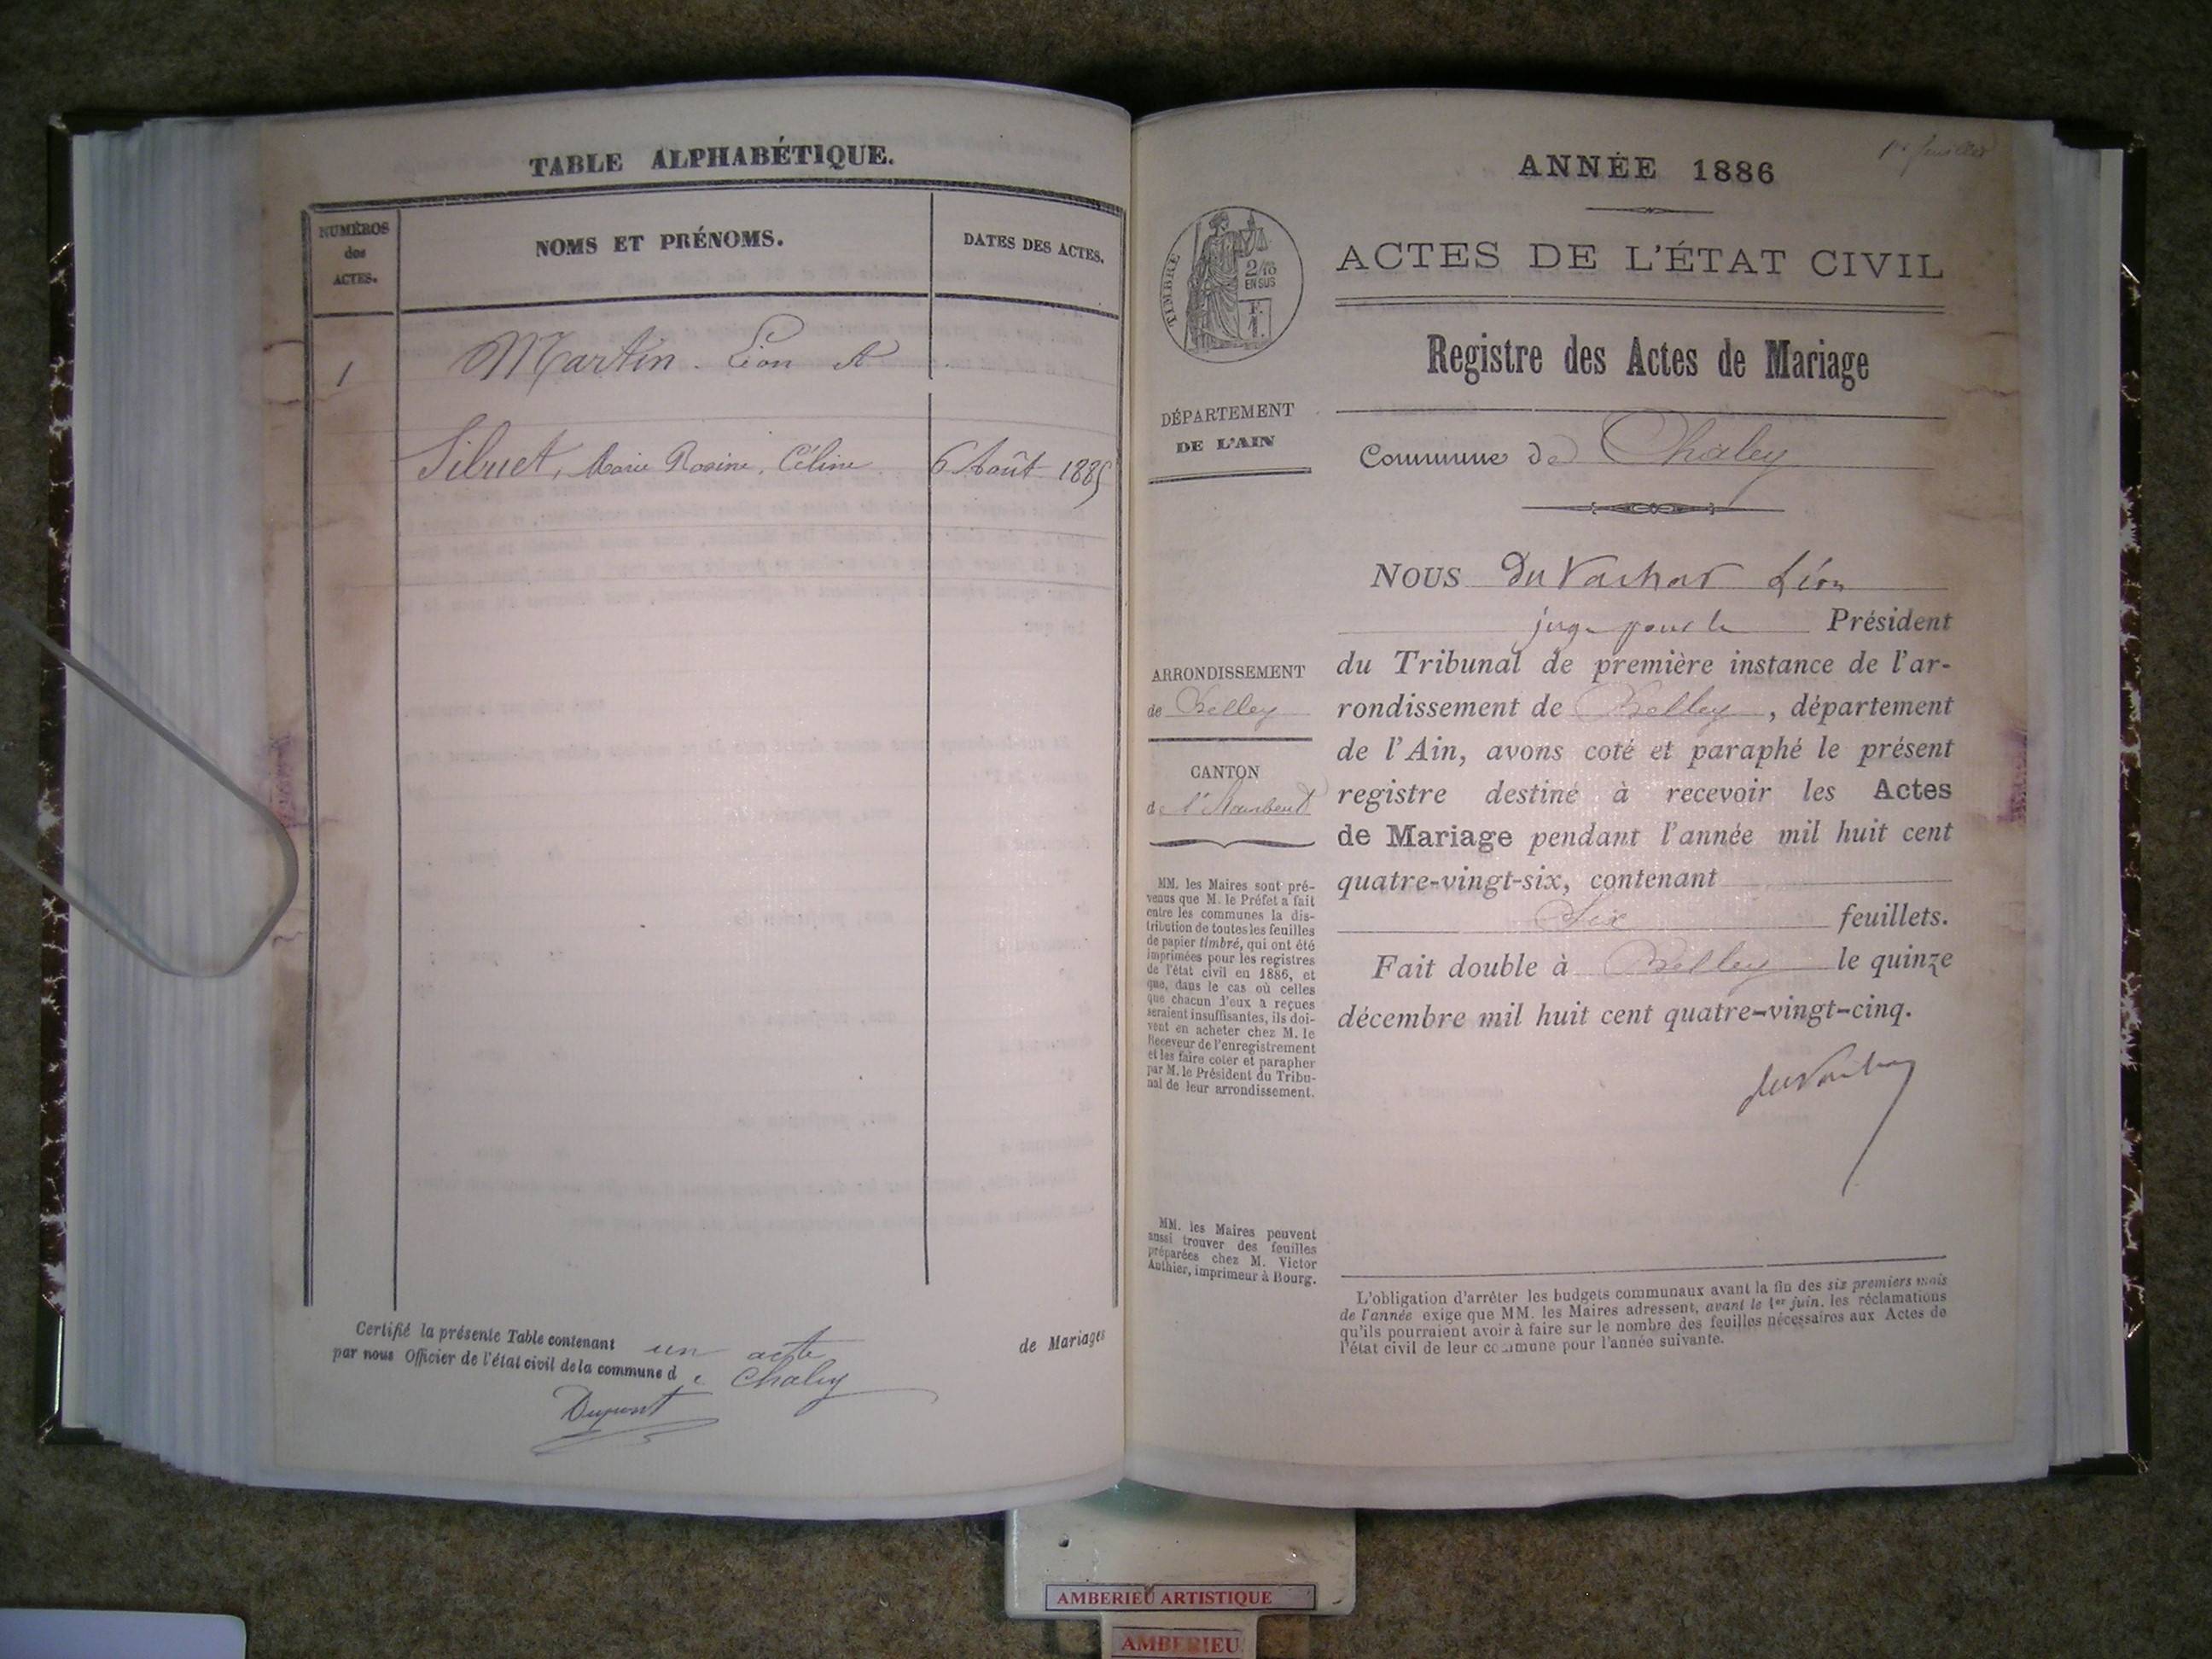 TABLE ALPHABÉTIQUE.
NUMÉROS
des
ACTES.
NOMS ET PRÉNOMS.
DATES DES ACTES.
1
Martin Léon et
Sibuet, Marie Rosine, Céline
6 Août 1885
Certifié la présente Table contenant un acte de Mariages
par nous Officier de l'état civil de la commune de Chaley
Dupont
1er feuillet
ANNÉE 1886
TIMBRE
2/10
EN SUS
F.
1.
ACTES DE L'ÉTAT CIVIL
Registre des Actes de Mariage
DÉPARTEMENT
DE L'AIN
Commune de Chaley
NOUS Du Vachat Léon
juge pour le Président
du Tribunal de première instance de l'ar-
rondissement de Belley, département
de l'Ain, avons coté et paraphé le présent
registre destiné à recevoir les Actes
de Mariage pendant l'année mil huit cent
quatre-vingt-six, contenant
Six feuillets.
Fait double à Belley le quinze
décembre mil huit cent quatre-vingt-cinq.
ARRONDISSEMENT
de Belley
CANTON
de St Rambert
MM. les Maires sont pré-
venus que M. le Préfet a fait
entre les communes la dis-
tribution de toutes les feuilles
de papier timbré, qui ont été
imprimées pour les registres
de l'état civil en 1886, et
que, dans le cas où celles
que chacun d'eux a reçues
seraient insuffisantes, ils doi-
vent en acheter chez M. le
Receveur de l'enregistrement
et les faire coter et parapher
par M. le Président du Tribu-
nal de leur arrondissement.
MM. les Maires peuvent
aussi trouver des feuilles
préparées chez M. Victor
Authier, imprimeur à Bourg.
L'obligation d'arrêter les budgets communaux avant la fin des six premiers mois
de l'année exige que MM. les Maires adressent, avant le 1er juin, les réclamations
qu'ils pourraient avoir à faire sur le nombre des feuilles nécessaires aux Actes de
l'état civil de leur commune pour l'année suivante.
AMBERIEU ARTISTIQUE
AMBERIEU